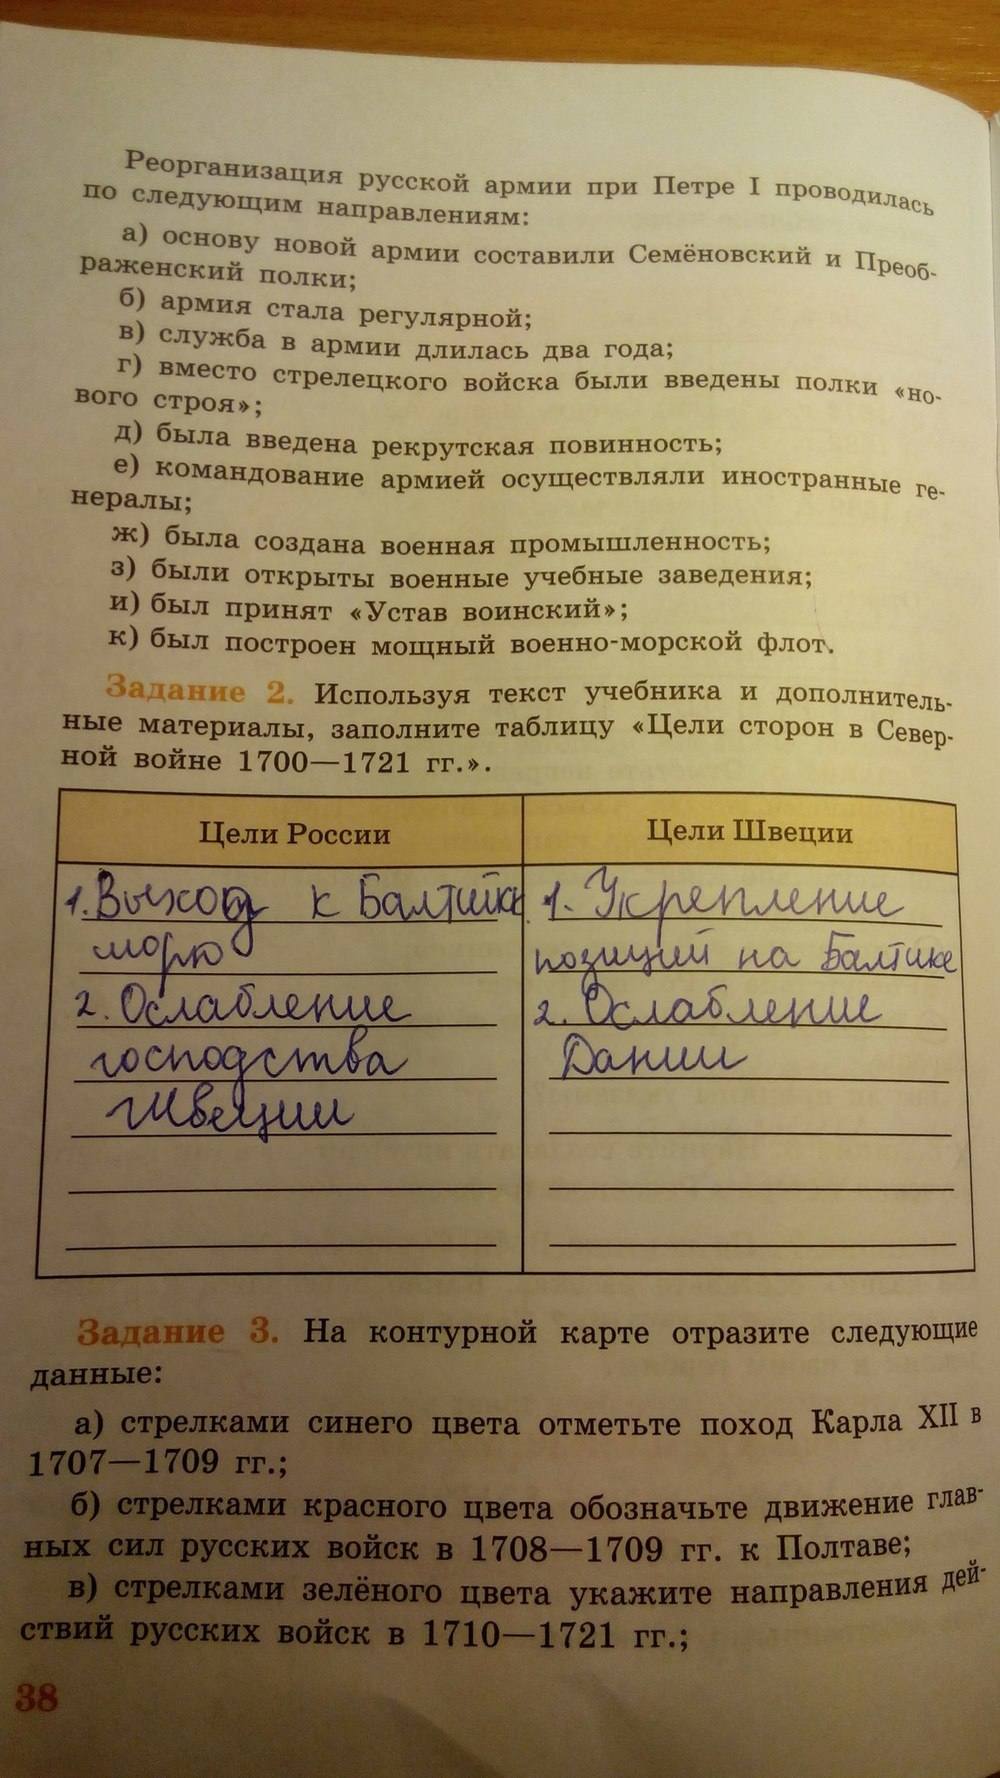 Реорганизация русской армии при Петре I проводилась
по следующим направлениям:
а) основу новой армии составили Семёновский и Преоб-
раженский полки;
б) армия стала регулярной;
в) служба в армии длилась два года;
г) вместо стрелецкого войска были введены полки «но-
вого строя»;
д) была введена рекрутская повинность;
е) командование армией осуществляли иностранные ге-
нералы;
ж) была создана военная промышленность;
з) были открыты военные учебные заведения;
и) был принят «Устав воинский»;
к) был построен мощный военно-морской флот.
Задание 2. Используя текст учебника и дополнитель-
ные материалы, заполните таблицу «Цели сторон в Север-
ной войне 1700—1721 гг.».
Цели России
1. Выход к Балтийск.
морю
2. Ослабление
господства
Швеции
Цели Швеции
1. Укрепление
позиций на Балтике
2. Ослабление
Дании
Задание 3. На контурной карте отразите следующие
данные:
а) стрелками синего цвета отметьте поход Карла XII в
1707—1709 гг.;
б) стрелками красного цвета обозначьте движение глав-
ных сил русских войск в 1708—1709 гг. к Полтаве;
в) стрелками зелёного цвета укажите направления дей-
ствий русских войск в 1710—1721 гг.;
38